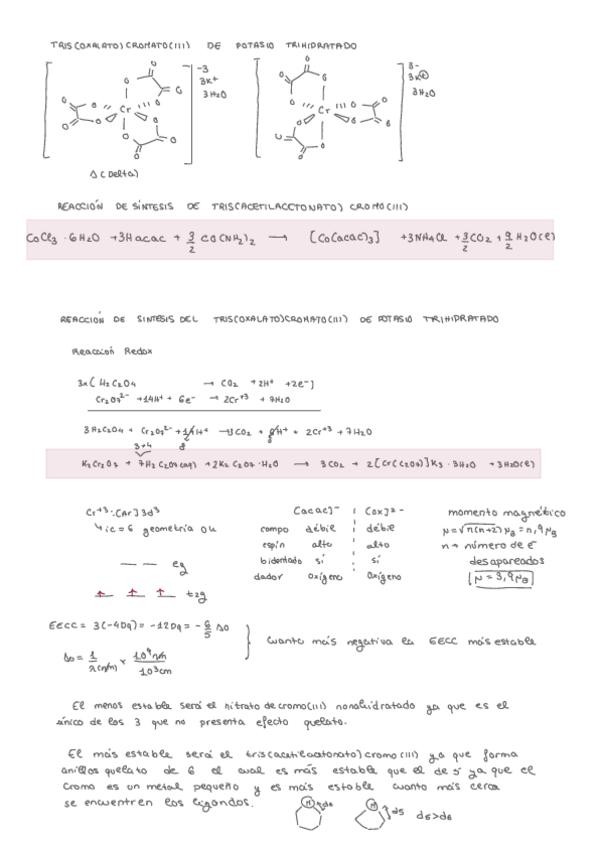 TRIS(OXALATO)CROMATO(III) DE POTASIO TRIHIDRATADO
-3
3K+
3H2O
3-
3K+
3H2O
Δ(Delta)
REACCIÓN DE SÍNTESIS DE TRIS(ACETILACETONATO) CROMO(III)
CoCl3 · 6H2O + 3Hacac + 3/2 CO(NH2)2 → [Co(acac)3] + 3NH4Cl + 3/2 CO2 + 9/2 H2O(l)
REACCIÓN DE SINTESIS DEL TRIS(OXALATO)CROMATO(III) DE POTASIO TRIHIDRATADO
Reacción Redox
3x( H2C2O4 → CO2 + 2H+ + 2e-)
Cr2O7 2- + 14H+ + 6e- → 2Cr+3 + 7H2O
3H2C2O4 + Cr2O7 2- + 14H+ → CO2 + 6H+ + 2Cr+3 + 7H2O
3+4 8
K2Cr2O7 + 7H2C2O4(aq) + 2K2C2O4·H2O → 3CO2 + 2[Cr(C2O4)]K3 · 3H2O + 3H2O(l)
Cr+3: [Ar]3d3
ic=6 geometría Oh
eg
t2g
[acac]- [ox]2-
campo débil débil
espín alto alto
bidentado sí sí
dador oxígeno oxígeno
momento magnético
μ=√n(n+2) μB = n,9μB
n → número de e-
desapareados
μ = 3,9μB
EECC = 3(-4Dq) = -12Dq = -6/5 Δo
Δo = 1/λ(nm) x 10^9 nm/10^3cm
cuanto más negativa la EECC más estable
El menos estable será el nitrato de cromo(III) nonahidratado ya que es el
único de los 3 que no presenta efecto quelato.
El más estable será el tris(acetilacetonato)cromo(III) ya que forma
anillos quelato de 6 el cual es más estable que el de 5 ya que el
cromo es un metal pequeño y es más estable cuanto más cerca
se encuentren los ligandos.
M d6 M d5 d5>d6